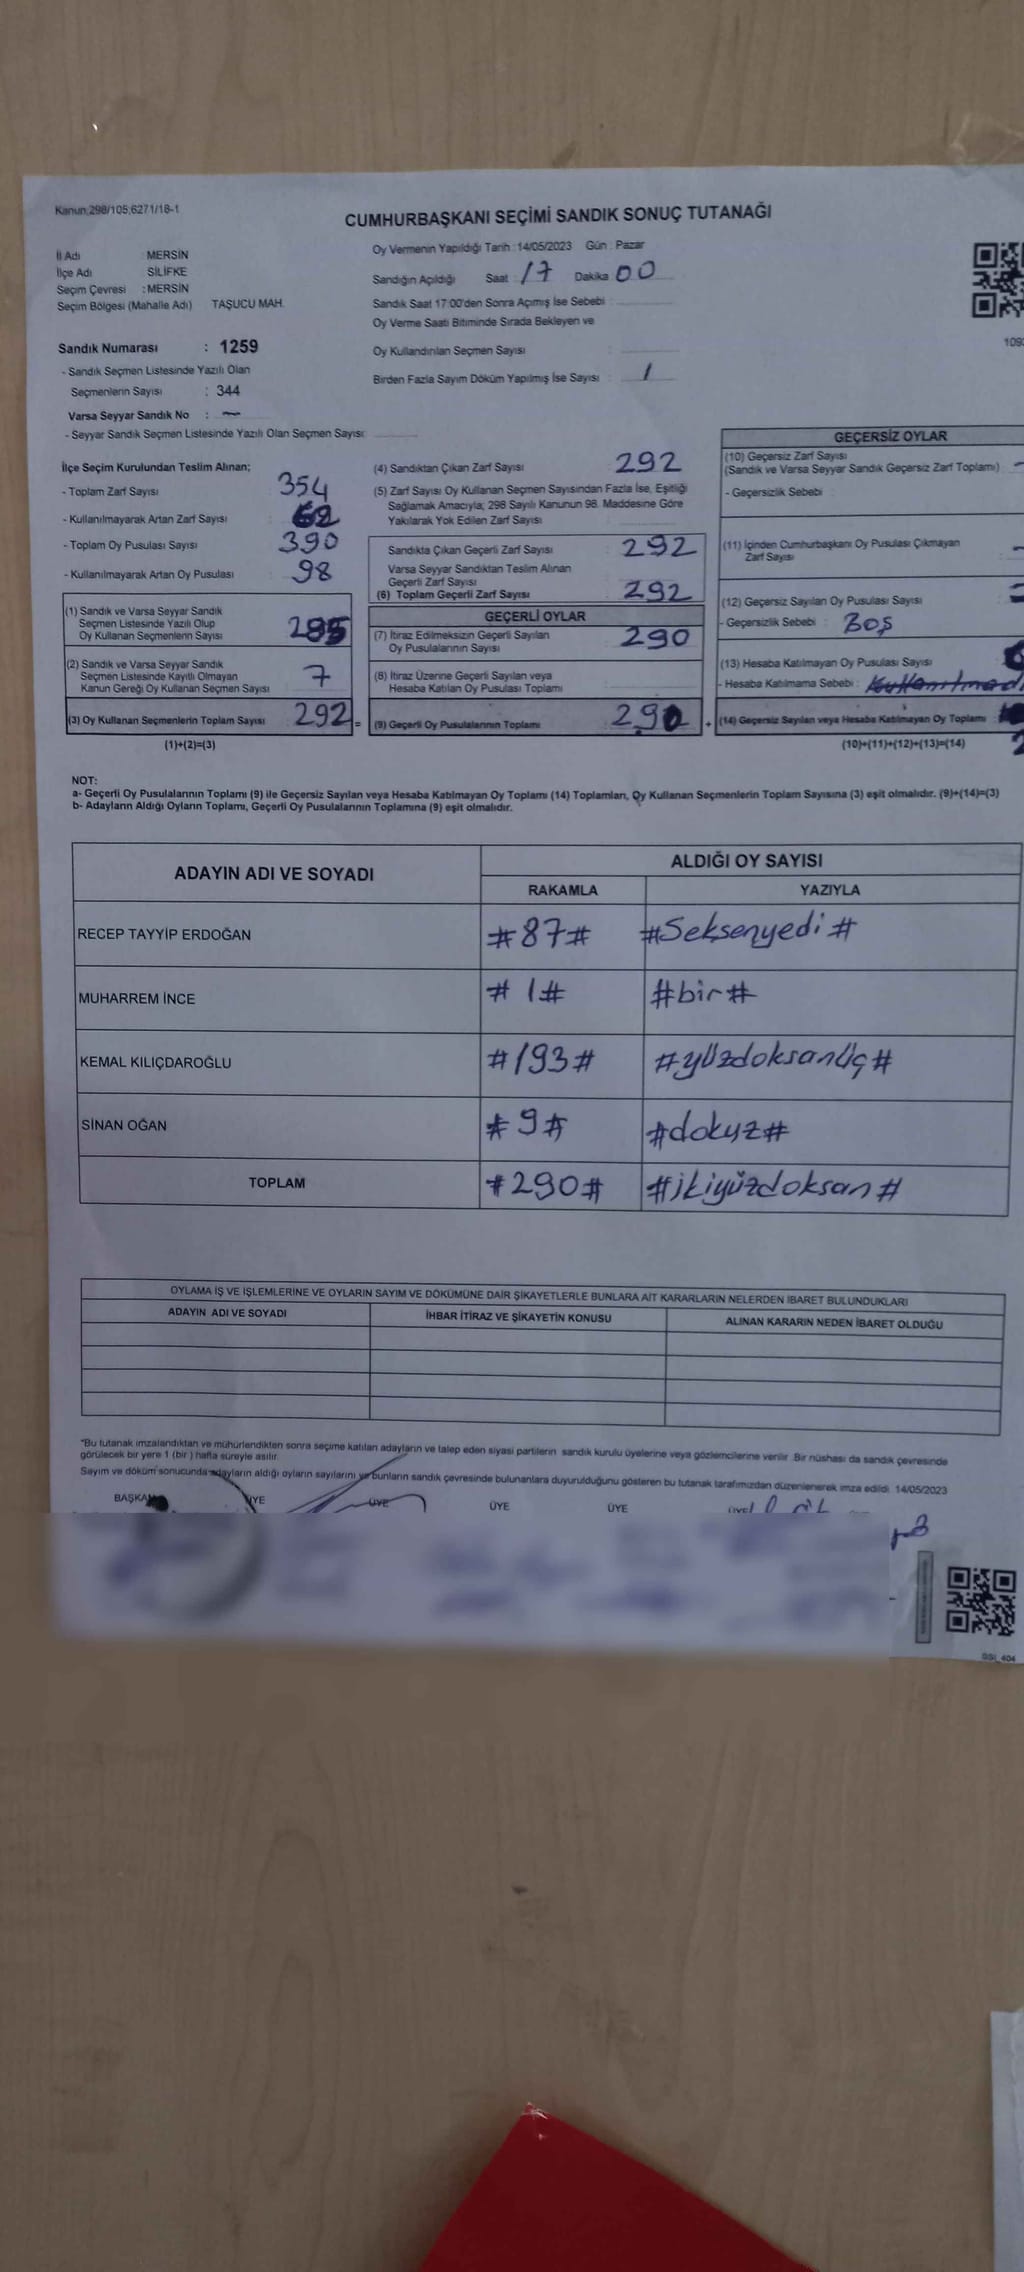 Kanun;298/105;6271/18-1
CUMHURBAŞKANI SEÇİMİ SANDIK SONUÇ TUTANAĞI
İl Adı : MERSİN
İlçe Adı SİLİFKE
Seçim Çevresi : MERSİN
Seçim Bölgesi (Mahalle Adı) TAŞUCU MAH.
Oy Vermenin Yapıldığı Tarih : 14/05/2023 Gün : Pazar
Sandığın Açıldığı Saat : 17 Dakika : 00
Sandık Saat 17:00'den Sonra Açımış İse Sebebi :
Oy Verme Saati Bitiminde Sırada Bekleyen ve
Oy Kullandırılan Seçmen Sayısı :
Birden Fazla Sayım Döküm Yapılmış İse Sayısı : 1
Sandık Numarası : 1259
- Sandık Seçmen Listesinde Yazılı Olan
Seçmenlerin Sayısı : 344
Varsa Seyyar Sandık No : ~
- Seyyar Sandık Seçmen Listesinde Yazılı Olan Seçmen Sayısı:
İlçe Seçim Kurulundan Teslim Alınan;
- Toplam Zarf Sayısı 354
- Kullanılmayarak Artan Zarf Sayısı 62
- Toplam Oy Pusulası Sayısı 390
- Kullanılmayarak Artan Oy Pusulası 98
(1) Sandık ve Varsa Seyyar Sandık
Seçmen Listesinde Yazılı Olup
Oy Kullanan Seçmenlerin Sayısı 285
(2) Sandık ve Varsa Seyyar Sandık
Seçmen Listesinde Kayıtlı Olmayan
Kanun Gereği Oy Kullanan Seçmen Sayısı 7
(3) Oy Kullanan Seçmenlerin Toplam Sayısı 292 =
(1)+(2)=(3)
(4) Sandıktan Çıkan Zarf Sayısı : 292
(5) Zarf Sayısı Oy Kullanan Seçmen Sayısından Fazla İse, Eşitliği
Sağlamak Amacıyla; 298 Sayılı Kanunun 98. Maddesine Göre
Yakılarak Yok Edilen Zarf Sayısı :
Sandıkta Çıkan Geçerli Zarf Sayısı : 292
Varsa Seyyar Sandıktan Teslim Alınan
Geçerli Zarf Sayısı :
(6) Toplam Geçerli Zarf Sayısı : 292
GEÇERLİ OYLAR
(7) İtiraz Edilmeksizin Geçerli Sayılan
Oy Pusulalarının Sayısı 290
(8) İtiraz Üzerine Geçerli Sayılan veya
Hesaba Katılan Oy Pusulası Toplamı
(9) Geçerli Oy Pusulalarının Toplamı 290 +
GEÇERSİZ OYLAR
(10) Geçersiz Zarf Sayısı
(Sandık ve Varsa Seyyar Sandık Geçersiz Zarf Toplamı) :
- Geçersizlik Sebebi :
(11) İçinden Cumhurbaşkanı Oy Pusulası Çıkmayan
Zarf Sayısı
(12) Geçersiz Sayılan Oy Pusulası Sayısı
- Geçersizlik Sebebi : BOŞ
(13) Hesaba Katılmayan Oy Pusulası Sayısı
- Hesaba Katılmama Sebebi :
(14) Geçersiz Sayılan veya Hesaba Katılmayan Oy Toplamı :
(10)+(11)+(12)+(13)=(14)
NOT:
a- Geçerli Oy Pusulalarının Toplamı (9) ile Geçersiz Sayılan veya Hesaba Katılmayan Oy Toplamı (14) Toplamları, Oy Kullanan Seçmenlerin Toplam Sayısına (3) eşit olmalıdır. (9)+(14)=(3)
b- Adayların Aldığı Oyların Toplamı, Geçerli Oy Pusulalarının Toplamına (9) eşit olmalıdır.
ADAYIN ADI VE SOYADI
ALDIĞI OY SAYISI
RAKAMLA YAZIYLA
RECEP TAYYİP ERDOĞAN #87# #Seksenyedi#
MUHARREM İNCE #1# #bir#
KEMAL KILIÇDAROĞLU #193# #yüzdoksanüç#
SİNAN OĞAN #9# #dokuz#
TOPLAM #290# #ikiyüzdoksan#
OYLAMA İŞ VE İŞLEMLERİNE VE OYLARIN SAYIM VE DÖKÜMÜNE DAİR ŞİKAYETLERLE BUNLARA AİT KARARLARIN NELERDEN İBARET BULUNDUKLARI
ADAYIN ADI VE SOYADI İHBAR İTİRAZ VE ŞİKAYETİN KONUSU ALINAN KARARIN NEDEN İBARET OLDUĞU
*Bu tutanak imzalandıktan ve mühürlendikten sonra seçime katılan adayların ve talep eden siyasi partilerin sandık kurulu üyelerine veya gözlemcilerine verilir. Bir nüshası da sandık çevresinde
görülecek bir yere 1 (bir ) hafta süreyle asılır.
Sayım ve döküm sonucunda adayların aldığı oyların sayılarını ve bunların sandık çevresinde bulunanlara duyurulduğunu gösteren bu tutanak tarafımızdan düzenlenerek imza edildi. 14/05/2023
BAŞKAN ÜYE ÜYE ÜYE ÜYE ÜYE